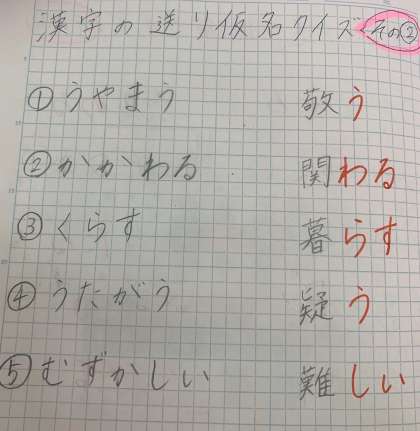 漢字の送り仮名クイズその②
①うやまう 敬う
②かかわる 関わる
③くらす 暮らす
④うたがう 疑う
⑤むずかしい 難しい